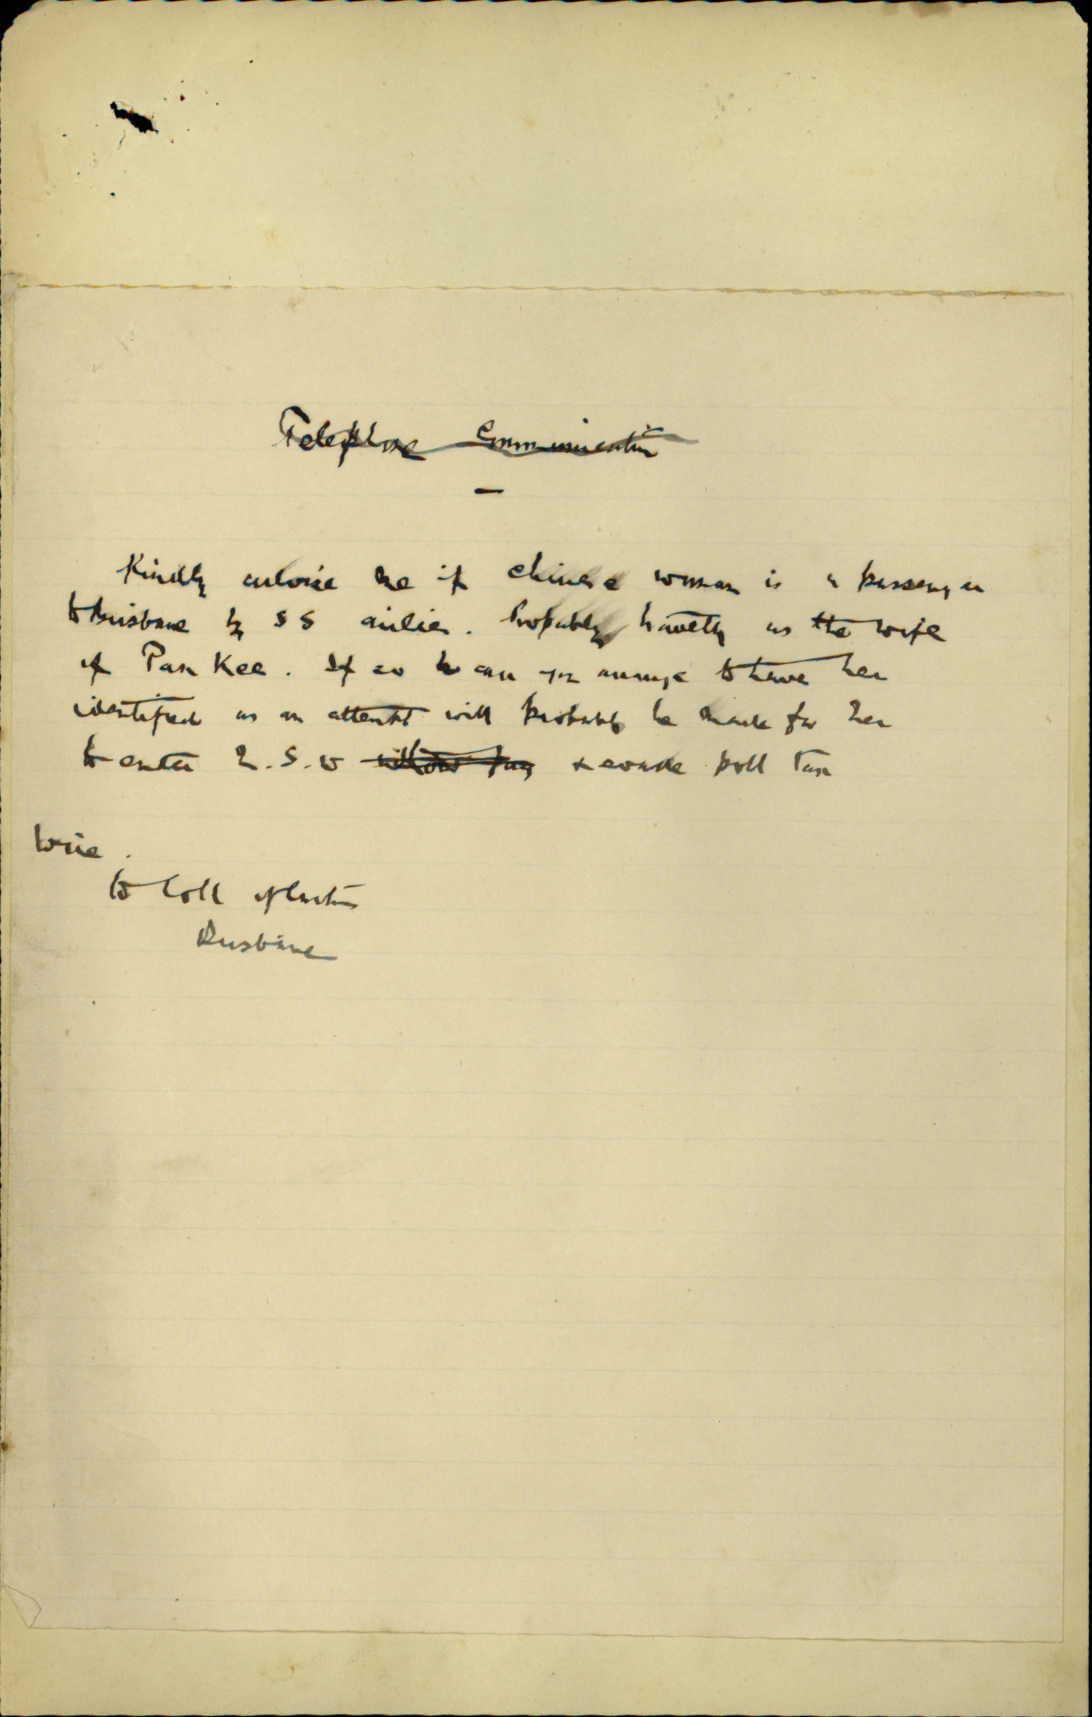 Telephone Communication
Kindly advise me if Chinese woman is a passenger
to Brisbane by SS Airlie. Probably travellg as the wife
of Pan Kee. If so can you arrange to have her
identified as an attempt will probably be made for her
to enter N.S.W without pay & evade poll tax
Wire.
to Coll of Customs
Brisbane